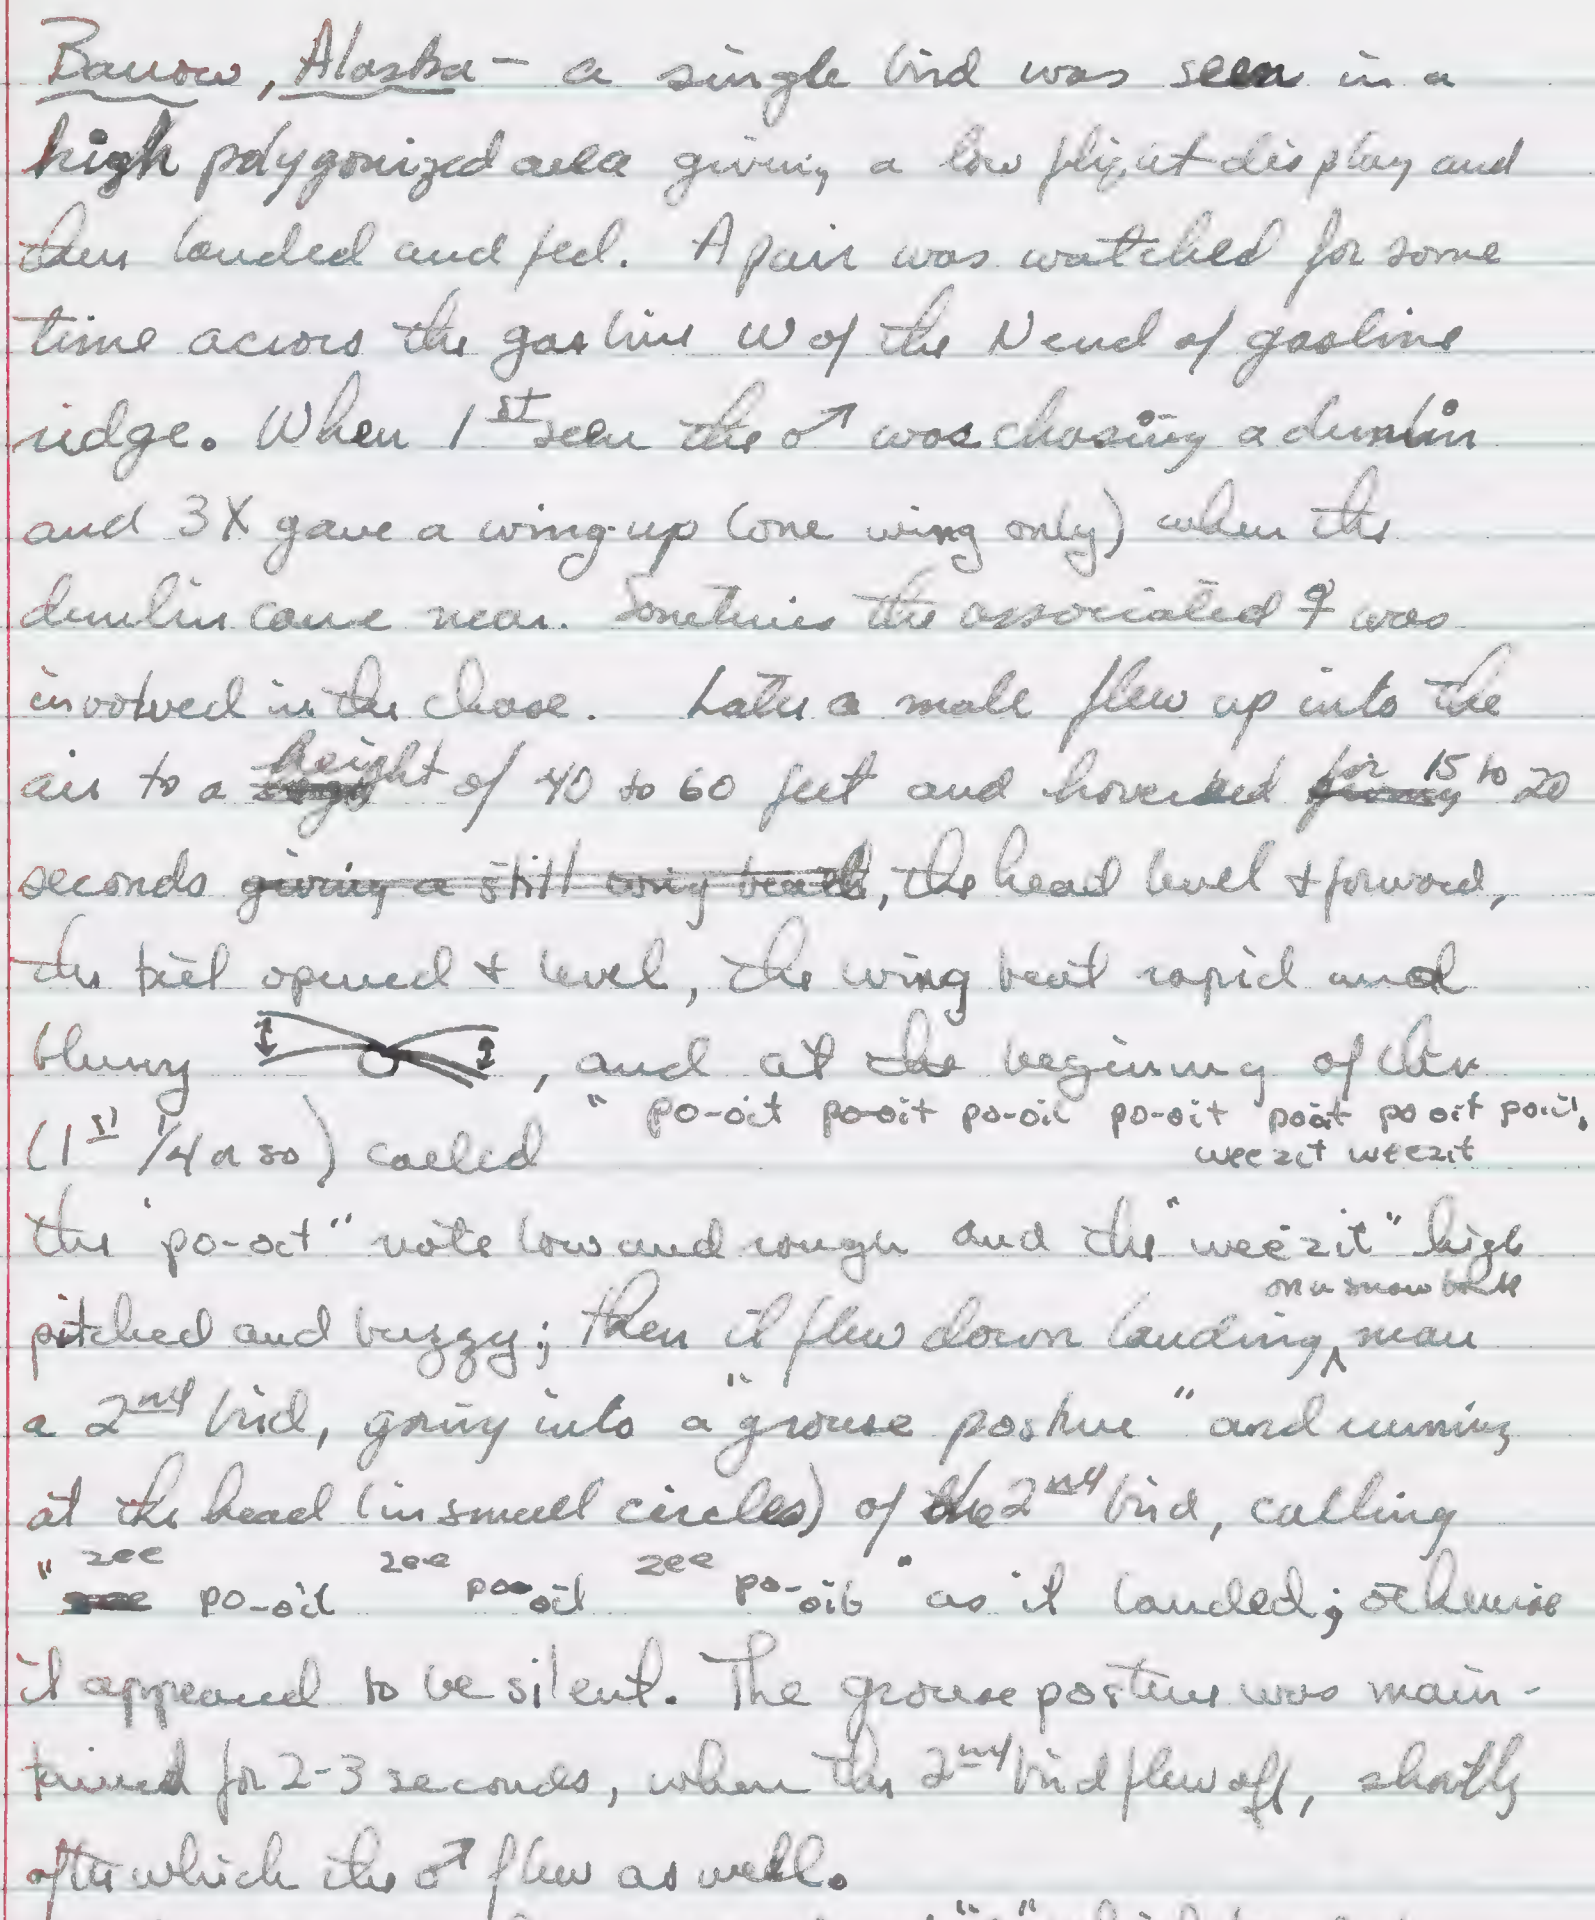 Barrow, Alaska - a single bird was seen in a
high polygonized area giving a low flight display and
then landed and fed. A pair was watched for some
time across the gas line W of the N end of gasline
ridge. When 1st seen the ♂ was chasing a dunlin
and 3X gave a wing-up (one wing only) when the
dunlin came near. Sometimes the associated ♀ was
involved in the chase. Later a male flew up into the
air to a height of 40 to 60 feet and hovered for 15 to 20
seconds giving a still wing beat, the head level + forward,
the bill opened + level, the wing beat rapid and
blurry , and at the beginning of the
(1st 1/4 or so) called " po-oit po-oit po-oit po-oit poit po oit poit,
weezit weezit
the "po-oit" note low and rough and the "weezit" high
on a snow bank
pitched and buzzy; then it flew down landing ^ near
a 2nd bird, going into a "grouse posture" and running
at the head (in small circles) of the 2nd bird, calling
" zee po-oit zee po-oit zee po-oit " as it landed; otherwise
it appeared to be silent. The grouse posture was main-
tained for 2-3 seconds, when the 2nd bird flew off, shortly
after which the ♂ flew as well.